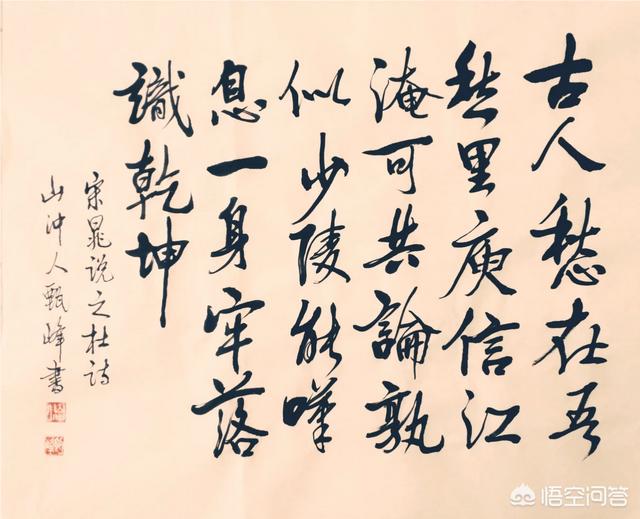 古人愁在吾
愁里庾信江
淹可共論孰
似少陵能嘆
息一身牢落
識乾坤
宋晁说之杜诗
山冲人甄峰書
悟空问答